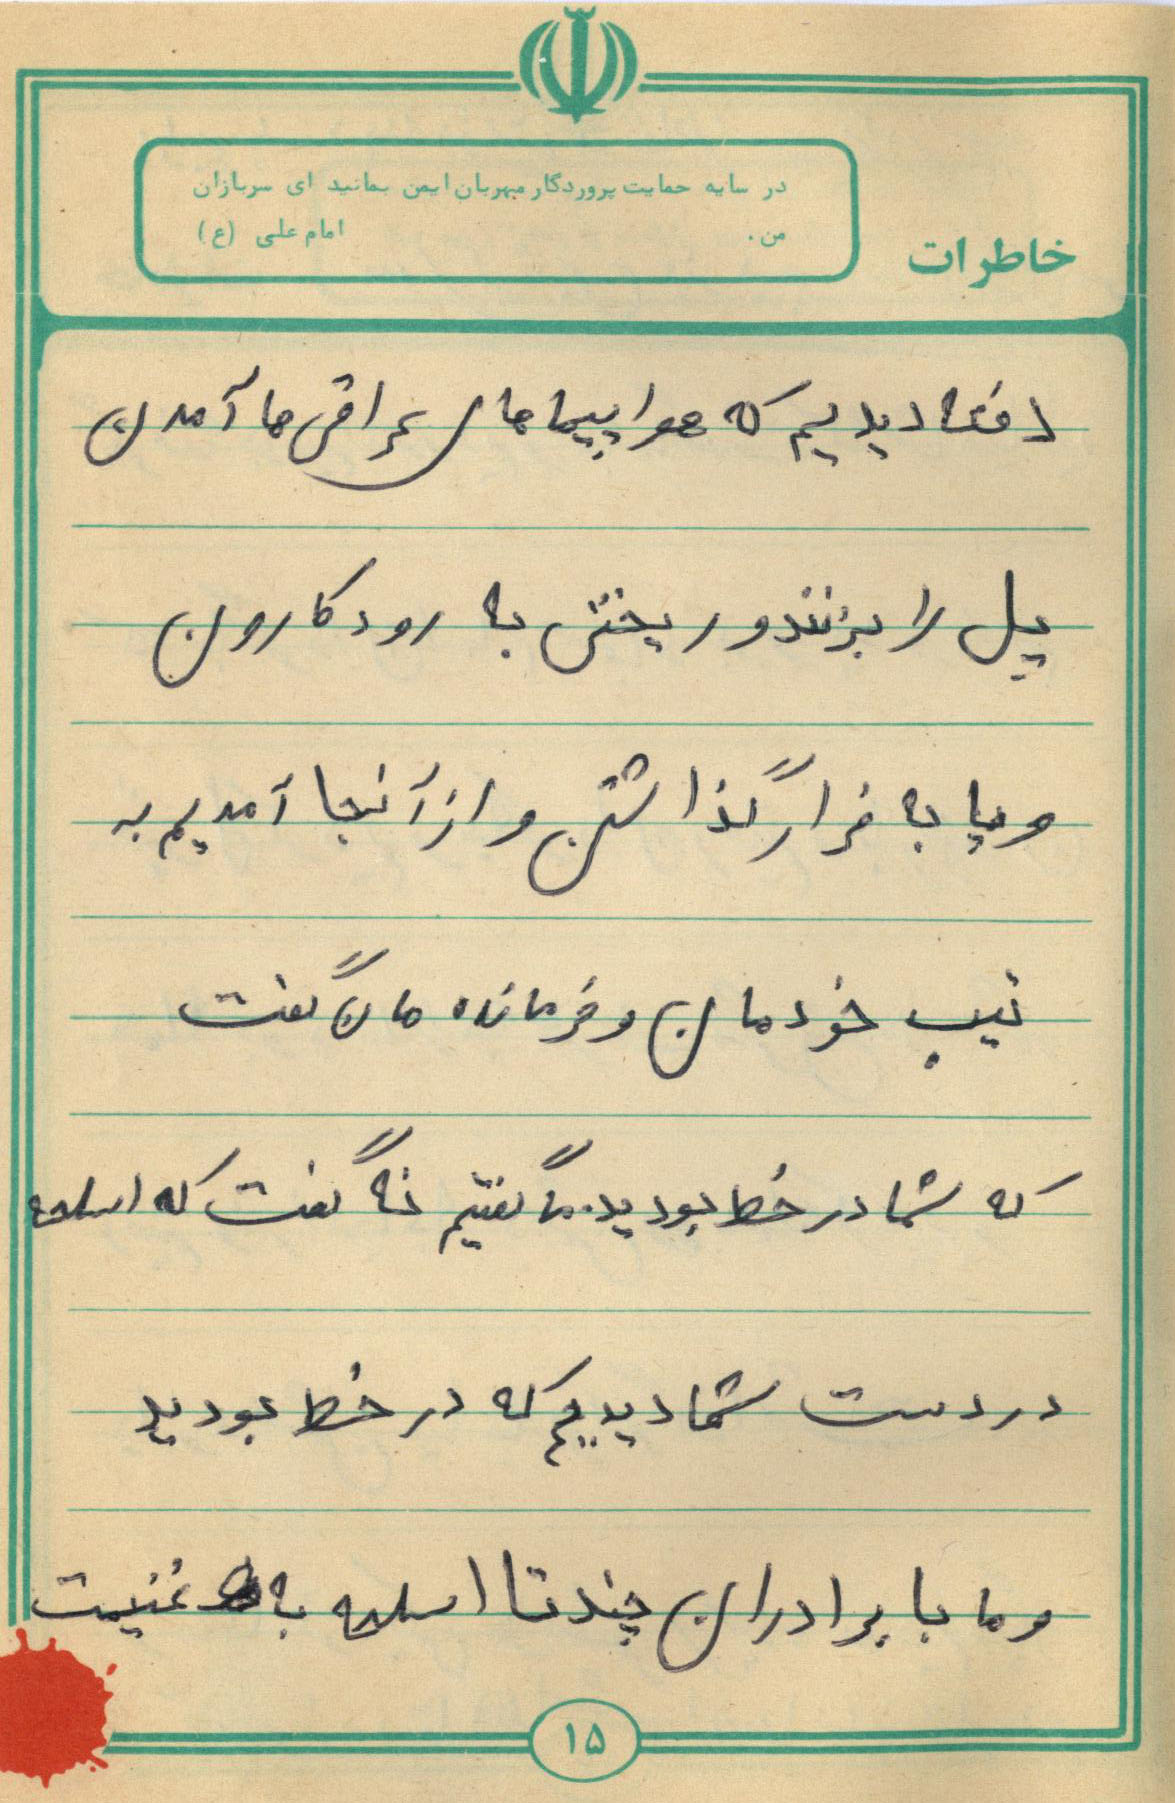 در سایه حمایت پروردگار مهربان ایمن بمانید ای سربازان
من. امام علی (ع)
خاطرات
دفتا دیدیم که هواپیماهای عراقی ها آمدن
پل را بزنند و ریختن به رود کارون
و پا به فرار گذاشتن و از آنجا آمدیم به
تیپ خودمان و فرمانده مان گفت
که شما در خط بودید. ما گفتیم نه گفت که اسلحه
در دست شما دیدیم که در خط بودید
و ما با برادران چند تا اسلحه به غنیمت
۱۵